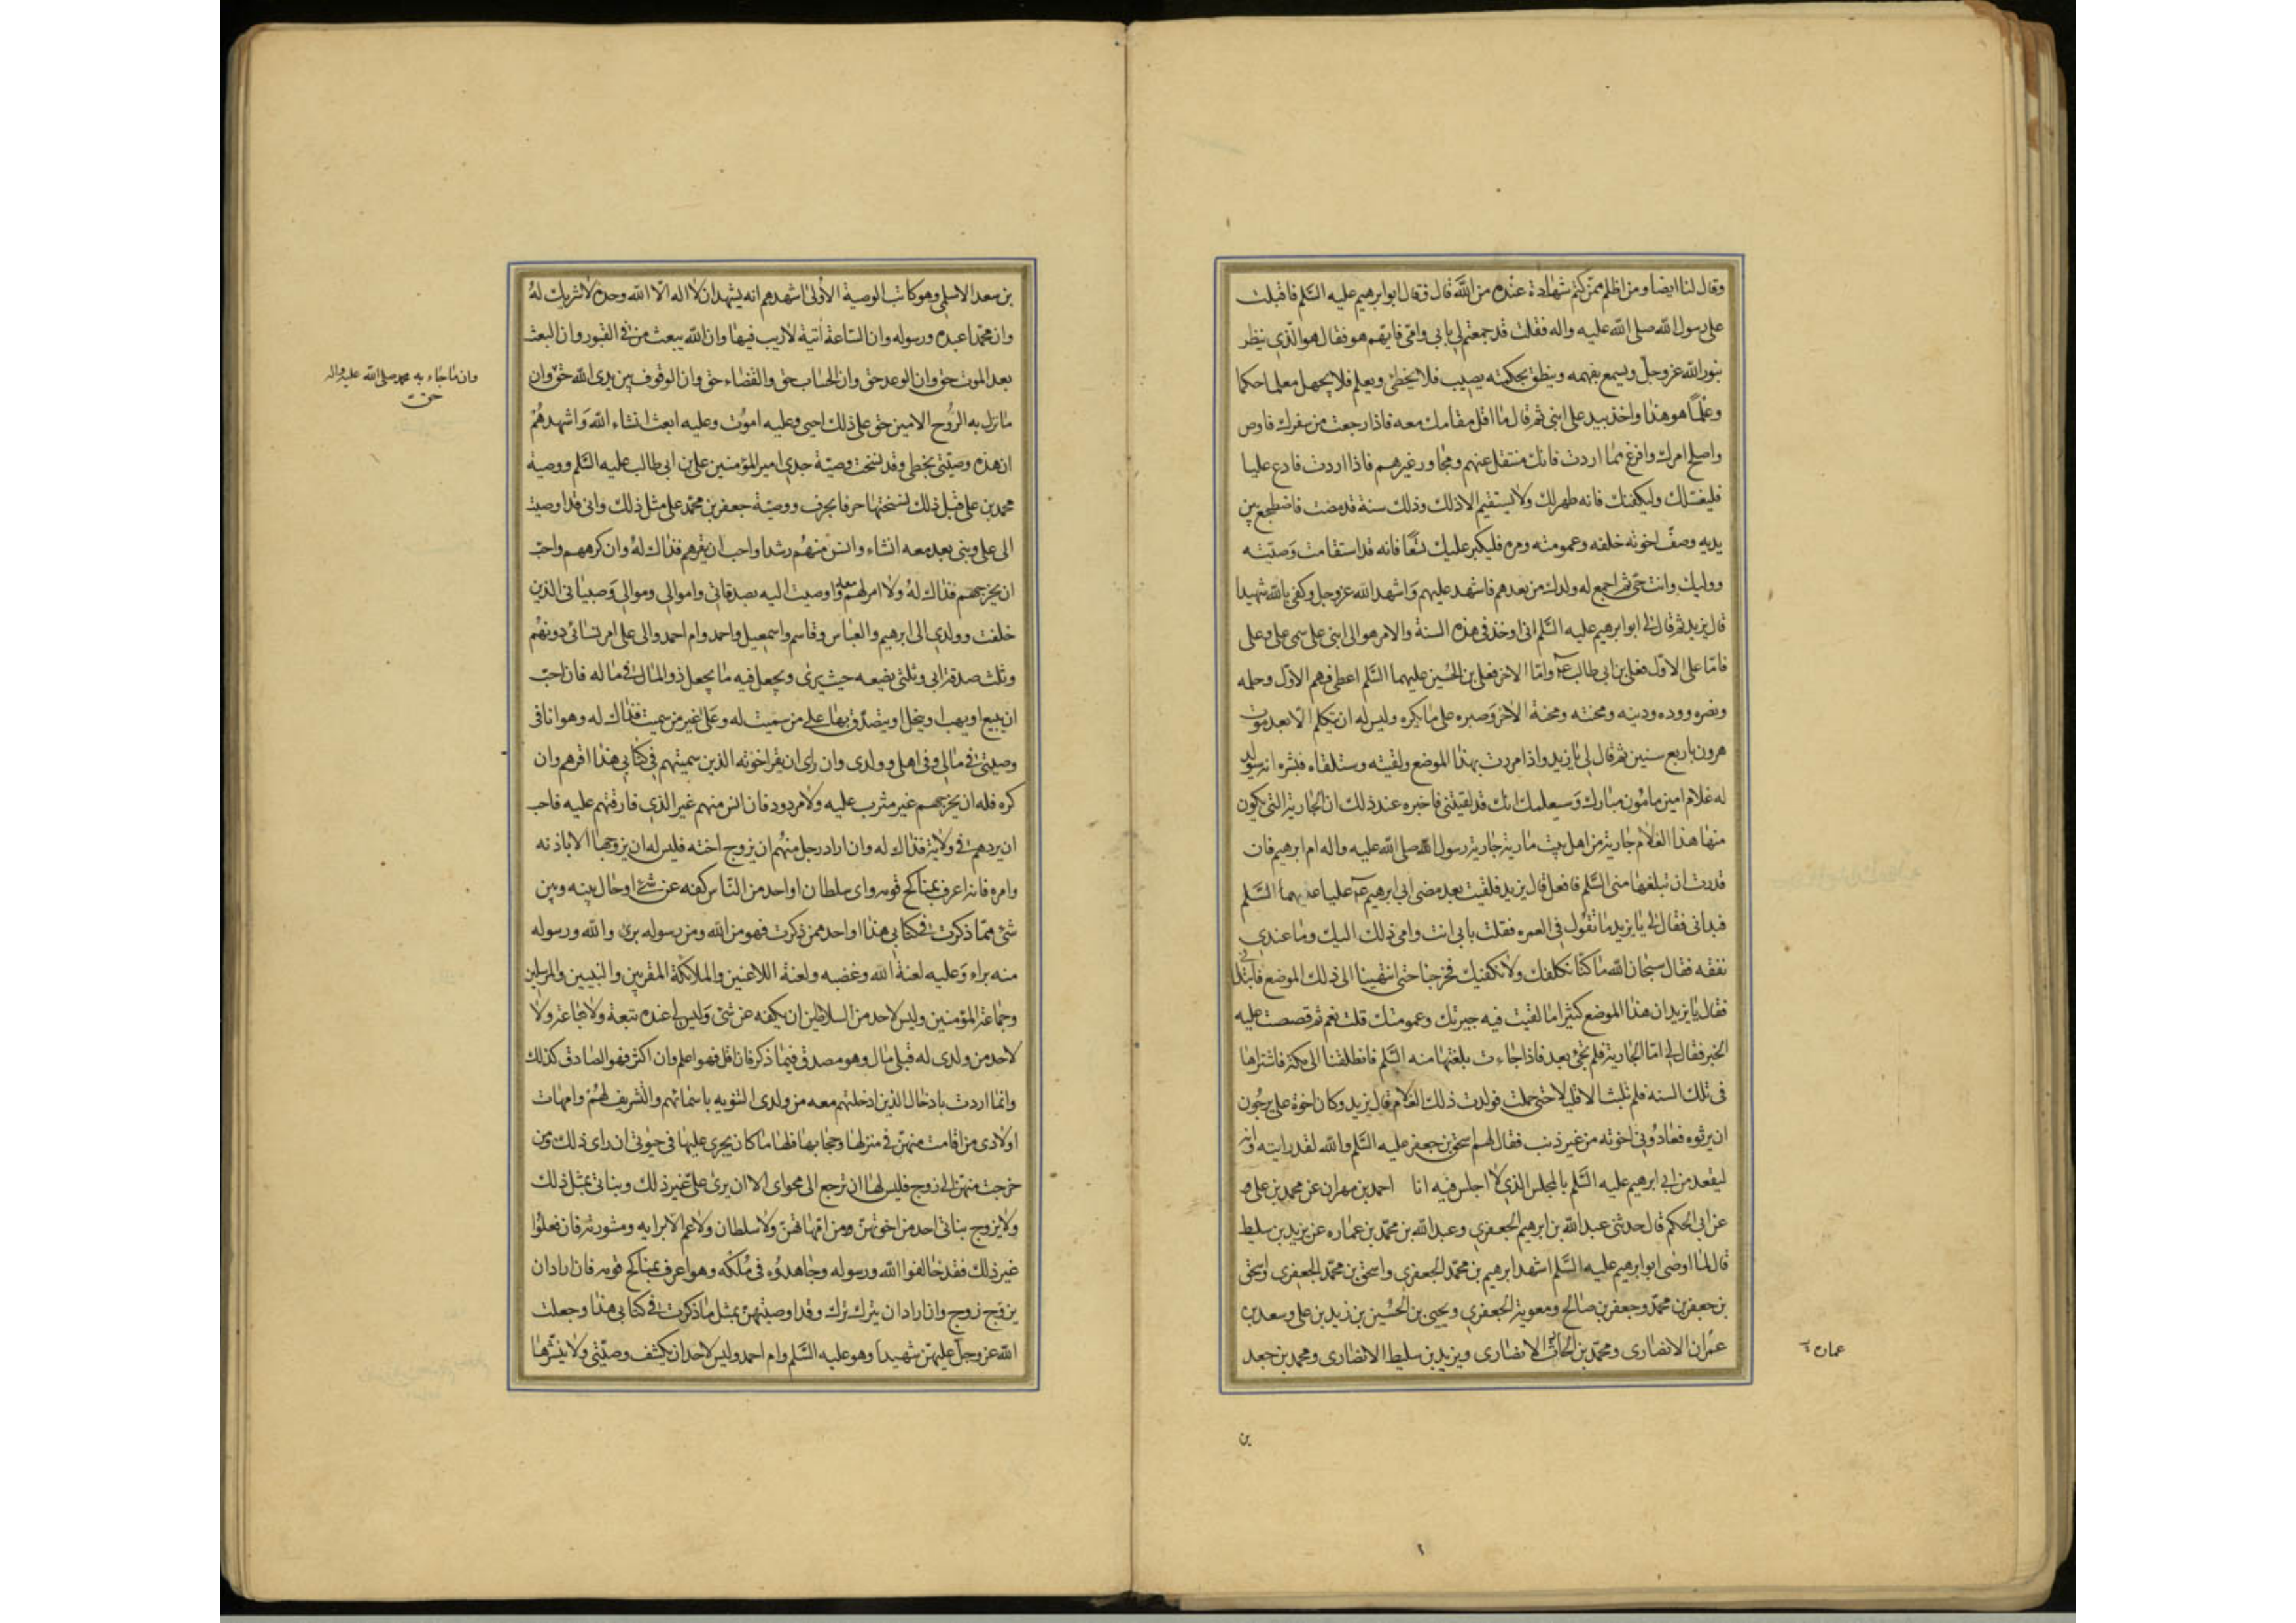 وقال لنا ايضا ومن اظلم ممن كتم شهادة عنده من الله قال فقال ابو ابرهيم عليه السلم فاقبلت
على رسول الله صلى الله عليه واله فقلت قد جمعتهم لى بابي وامى فايهم هو فقال هو الذي ينظر
بنور الله عز وجل ويسمع بفهمه وينطق بحكمته يصيب فلا يخطئ ويعلم فلا يجهل معلما حكما
وعلما هو هذا واخذ بيد على ابنى ثم قال ما اقل مقامك معه فاذا رجعت من سفرك فاوص
واصلح امرك وافرغ مما اردت فانك منتقل عنهم ومجاور غيرهم فاذا اردت فادع عليا
فليغسلك وليكفنك فانه طهر لك ولا يستقيم الا ذلك وذلك سنة قد مضت فاضطجع بين
يديه وصف اخوته خلفه وعمومته ومره فليكبر عليك تسعا فانه قد استقامت وصيته
ووليك وانت حى ثم اجمع له ولدك من بعدهم فاشهد عليهم واشهد الله عز وجل وكفى بالله شهيدا
قال يزيد ثم قال لى ابو ابرهيم عليه السلم انى اوخذ فى هذه السنة والامر هو الى ابنى على سمى على وعلى
فاما على الاول فعلى بن ابى طالب عم واما الاخر فعلى بن الحسين عليهما السلم اعطى فهم الاول وحلمه
ونصره ووده ودينه ومحنته ومحنة الاخر وصبره على ما يكره وليس له ان يتكلم الا بعد موت
هرون باربع سنين ثم قال لى يا يزيد واذا مررت بهذا الموضع ولقيته وستلقاه فبشره انه سيولد
له غلام امين مامون مبارك وسيعلمك انك قد لقيتنى فاخبره عند ذلك ان الجارية التى يكون
منها هذا الغلام جارية من اهل بيت مارية جارية رسول الله صلى الله عليه واله ام ابرهيم فان
قدرت ان تبلغها منى السلم فافعل قال يزيد فلقيت بعد مضى ابى ابرهيم عم عليا عليهما السلم
فبدانى فقال لى يا يزيد ما تقول فى العمره فقلت بابى انت وامى ذلك اليك وما عندي
نفقه فقال سبحان الله ما كنا نكلفك ولا نكفيك فخرجنا حتى انتهينا الى ذلك الموضع فابتدانى
فقال يا يزيد ان هذا الموضع كثيرا ما لقيت فيه جيرتك وعمومتك قلت نعم ثم قصصت عليه
الخبر فقال لى اما الجارية فلم تجئ بعد فاذا جاءت بلغتها منه السلم فانطلقنا الى مكة فاشتراها
فى تلك السنه فلم تلبث الا قليلا حتى حملت فولدت ذلك الغلام قال يزيد وكان اخوة على يرجون
ان يرثوه فعادونى اخوته من غير ذنب فقال لهم اسحق بن جعفر عليه السلم والله لقد رايته وانه
ليقعد من ابى ابرهيم عليه السلم بالمجلس الذي لا اجلس فيه انا احمد بن مهران عن محمد بن على
عن ابى الحكم قال حدثنى عبد الله بن ابرهيم الجعفري وعبد الله بن محمد بن عماره عن يزيد بن سليط
قال لما اوصى ابو ابرهيم عليه السلم اشهد ابرهيم بن محمد الجعفري واسحق بن محمد الجعفرى واسحق
بن جعفر بن محمد وجعفر بن صالح ومعوية الجعفري ويحيى بن الحسين بن زيد بن على وسعد بن
عمران الانصارى ومحمد بن الحارث الانصارى ويزيد بن سليط الانصارى ومحمد بن جعد
بن
بن سعد الاسلمى وهو كاتب الوصية الاولى اشهدهم انه يشهد ان لا اله الا الله وحده لا شريك له
وان محمدا عبده ورسوله وان الساعة اتية لا ريب فيها وان الله يبعث من فى القبور وان البعث
بعد الموت حق وان الوعد حق وان الحساب حق والقضاء حق وان الوقوف بين يدى الله حق وان
وان ما جاء به محمد صلى الله عليه واله
حق
ما نزل به الروح الامين حق على ذلك احيى وعليه اموت وعليه ابعث انشاء الله واشهدهم
ان هذه وصيتى بخطى وقد نسخت وصية جدى امير المؤمنين على بن ابى طالب عليه السلم ووصية
محمد بن على قبل ذلك نسختها حرفا بحرف ووصية جعفر بن محمد على مثل ذلك وانى قد اوصيت
الى على وبنى بعد معه انشاء وانس منهم رشدا واحب ان يقرهم فذاك له وان كرههم واحب
ان يخرجهم فذاك له ولا امر لهم معه واوصيت اليه بصدقاتى واموالى وموالى وصبيانى الذين
خلفت وولدى الى ابرهيم والعباس وقاسم واسمعيل واحمد وام احمد والى على امر نسائى دونهم
وثلث صدقة ابى وثلثى يضعه حيث يرى ويجعل فيه ما يجعل ذو المال فى ماله فان احب
ان يبيع او يهب او ينحل او يتصدق بها على من سميت له وعلى غير من سميت فذاك له وهو انا فى
وصيتى فى مالى وفى اهلى وولدى وان راى ان يقر اخوته الذين سميتهم فى كتابى هذا اقرهم وان
كره فله ان يخرجهم غير مثرب عليه ولا مردود فان انس منهم غير الذي فارقتهم عليه فاحب
ان يردهم فى ولاية فذاك له وان اراد رجل منهم ان يزوج اخته فليس له ان يزوجها الا باذنه
وامره فانه اعرف بمناكح قومه واى سلطان او احد من الناس كفه عن شئ او حال بينه وبين
شئ مما ذكرت فى كتابى هذا او احد ممن ذكرت فهو من الله ومن رسوله برئ والله ورسوله
منه براء وعليه لعنة الله وغضبه ولعنة اللاعنين والملائكة المقربين والنبيين والمرسلين
وجماعة المؤمنين وليس لاحد من السلاطين ان يكفه عن شئ وليس لى عنده تبعة ولا تباعة ولا
لاحد من ولدى له قبلى مال وهو مصدق فيما ذكر فان اقل فهو اعلم وان اكثر فهو الصادق كذلك
وانما اردت بادخال الذين ادخلتهم معه من ولدى التنويه باسمائهم والتشريف لهم وامهات
اولادى من اقامت منهن فى منزلها وحجابها فلها ما كان يجرى عليها فى حيوتى ان راى ذلك ومن
خرجت منهن الى زوج فليس لها ان ترجع الى محواى الا ان يرى على غير ذلك وبناتى بمثل ذلك
ولا يزوج بناتى احد من اخوتهن ومن امهاتهن ولا سلطان ولا عم الا برايه ومشورته فان فعلوا
غير ذلك فقد خالفوا الله ورسوله وجاهدوه فى ملكه وهو اعرف بمناكح قومه فان اراد ان
يزوج زوج وان اراد ان يترك ترك وقد اوصيتهن بمثل ما ذكرت فى كتابى هذا وجعلت
الله عز وجل عليهن شهيدا وهو عليه السلم وام احمد وليس لاحد ان يكشف وصيتى ولا ينشرها